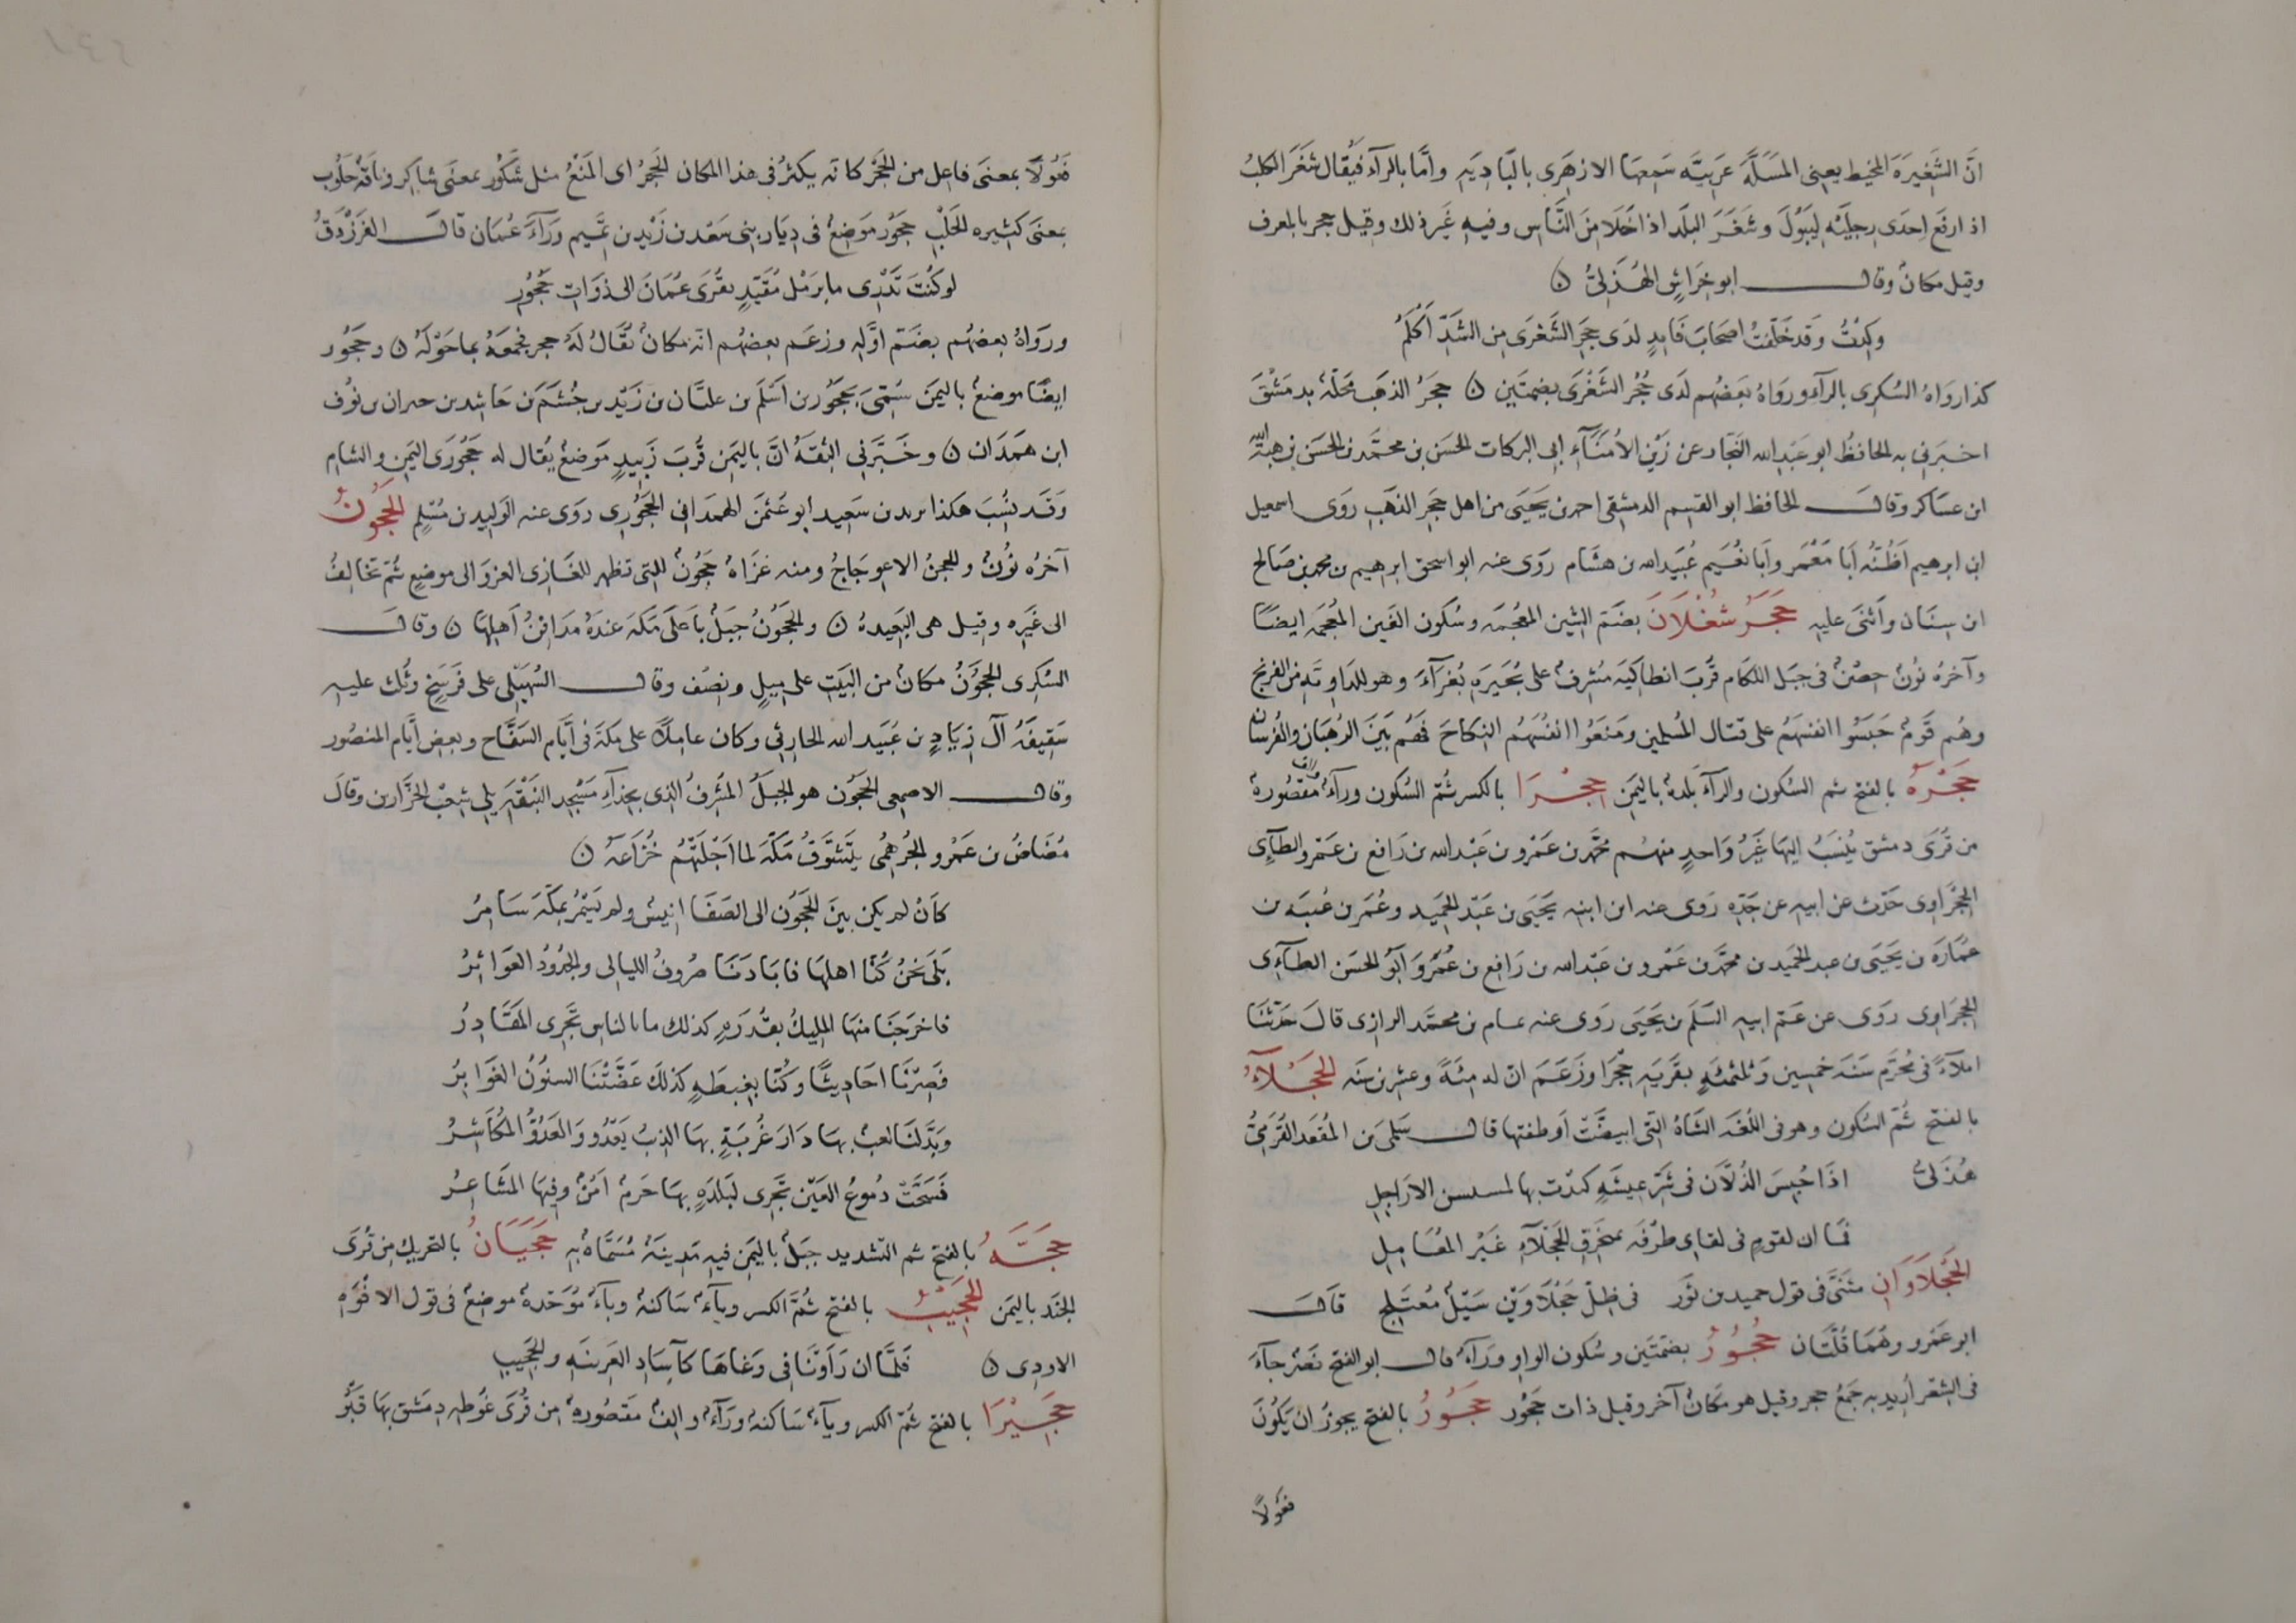 انَّ الشَغِيرَةَ المخيط يعنى المسَلَّه عَرَبيَّه سَمعهَا الازهَرى بالبَادِيَه وامَّا بالرآء فيُقال شغَرَ الكلبُ
اذ ارفَع اِحدَى رجليْهِ ليَبُولَ وشغَرَ البلَد اذا خَلَا مِنَ النَّاسِ وفيه غَير ذلك وقيل حجر بالمعرف
وقيل مكانٌ وقال ابو خِرَاشٍ الهُذَلىُّ ن
وكِدْتُ وَقد خَلّفتُ اصحَابَ فَايدٍ لدَى حجَر الشَغرَى مِن الشَدِّ أكْلَمُ
كذا رواهُ السُكرى بالرآء ورواهُ بعَضُهم لدَى حُجُر الشَغْرَى بضمتَين ن حجَرُ الذهَب مَحَلّة بدمَشْقَ
اخبَرنى به الحافظُ ابو عَبْدِالله النَجَّار عن زَيْنِ الأُمَنَآءِ ابى البركات الحسَن بن محمَّد بن الحسَن بن هبة الله
ابن عسَاكر وقال الحافظ ابو القسِم الدمشقى احمد بن يَحيَى من اهل حجَر الذَهَبِ روَى اسمعيل
ابن ابرهيم اَظُنُّه اَبَا مَعْمَر وابَا نعُيَم عُبَيدالله بن هشَام روَى عنه ابو اسحق ابرهيم بن محمد بن صَالح
ابن سِنَان واثنَى عليه حَجَرُ شُغْلَانَ بضَمّ الشِين المعُجمَه وسُكون الغَين المعُجَمَه ايضًا
وآخرهُ نُونٌ حِصْنٌ فى جبَل اللكام قُربَ انطاكيَه مُشِرفٌ على بُحَيرَةِ بُغرَآءَ وهو للدَاويَه من الفرنج
وهُم قَومٌ حَبسُوا انفسَهُم على قتال المُسلمين ومَنعَوا انفُسَهُم النكاحَ فهُم بيَنَ الرُهبَان والفُرسَان
حَجْرَةُ بالفتح ثم السُكون والرآءَ بَلدةٌ باليمَن حِجْرَا بالكسر ثمُّ السُكون ورآءٌ والف مَقصُورةٌ
من قرَى دمشق يُنسَبُ اليهَا غَيرُ وَاحدٍ منهُم محمّد بن عَمْرو بن عَبْدالله بن رَافع بن عَمْرو الطآئى
الحِجْرَاوى حَدّث عن ابيه عن جَدّه رَوى عنه ابن ابنه يَحيَى بن عَبْد الحَميد وعُمَر بن عُتبَه بن
عمَارَه بن يَحيَى بن عبد الحميد بن محمَّد بن عَمْرو بن عَبْدالله بن رَافع بن عُمرَو ابَوُ الحسَن الطآئى
الحجَرَاوى روَى عن عَمّ ابيه السَلَم بن يَحيَى رَوى عنه تمام بن محمَّد الرازى قال حَدّثنا
املآءً فى مُحرّم سَنَة خمسين وثلثمئهٍ بقَريَه حِجْرَا وزَعَمَ انّ له مئةً وعشرين سَنَه الحَجْلآءُ
بالفتح ثُمّ السُكون وهو فى اللغَة الشَاةُ التى ابيَضَّت اَوظفتها قال سَلمَى بن المُقعَد القُرَمىُّ
هُذَلىٌّ اذَا حُبِسَ الذُلّان فى شَرّ عيشَةٍ كبدّت بها الاراجِل
فما ان لقومٍ فى لقاى طرْفَه بمَخَرقِ الحَجْلآءِ غَيْر المعَابِل
الحَجْلَاوَانِ مثنّى فى قول حميد بن ثور فى ظلّ حَجْلَاوَيْنِ سَيْلٌ مُعتَلِج قَالَ
ابو عَمْرو وهُمَا قُلّتَان حُجُورٌ بضمّتَين وسُكون الواو ورَآءٌ قال ابو الفتح نَصْر جآءَ
فى الشِعْر اُريد به جَمْعُ حجر وقيل هو مَكانٌ آخر وقيل ذات حجُور حَجُورٌ بالفتح يجوز ان يَكُونَ
فعَولًا
فَعُولًا بمعنىَ فاعِل من الحَجْر كانه يكثرُ فى هذا المكان الحَجرُ اى المَنعُ مثل شَكُور بمعنَى شاكر ونَاقَة حَلوُب
بمعنَى كثيره الحَلْبِ حجَوُر مَوضِعٌ فى دِيَار بنى سَعْد بن زَيْد بن تمَيم ورَآءَ عُمَان قال الفَرَزْدَقُ
لو كنُتَ تَدْرِى ما برَمْل مُقَيّدٍ بقُرَى عُمَانَ الى ذوَاتِ حُجُورِ
وروَاهُ بعضهُم بضَمّ اوَّله وزعَم بعضهُم انّه مكانٌ يقَالُ لهُ حجر فجمعَهُ بما حَوْلَهُ ن وحَجوُر
ايضًا موضعٌ باليمَن سُمّىَ بحَجوُر بن اَسْلَم بن عليَّان بن زَيْد بن جُشَم بن حَاشد بن حبران بن نُوف
ابن همَدَان ن وخَبَّرنى الثِقَهُ انَّ باليمَن قُربَ زَبيدٍ مَوضعٌ يُقال له حَجُورَى اليَمن والشام
وقَد نُسِبَ هَكذا يزيد بن سَعيد ابو عُثمَن الهمدَانى الحَجُورِى روَى عنه الوَليد بن مُسْلِم الحَجُونُ
آخرُه نُونٌ والحجنُ الاعوجَاجُ ومنه غزَاةٌ حَجُونٌ التى تظهر الغَازى الغزوَ الى موضعٍ ثمّ تخَالِفُ
الى غيَره وقيل هى البَعيدةُ ن والحَجُونُ جبَلٌ باَعلَى مَكّةَ عندَهُ مدَافِنُ اَهِلهَا ن وقال
السُكرى الحجَوُنُ مكانٌ من البَيتِ على مِيلٍ ونصِف وقال السُهَيلى على فَرسَخٍ وثُلث عليه
سَقيفَهُ آلَ زيَادِ بن عُبَيد الله الحارِثى وكان عاملًا على مكّةَ فى ايَّام السَفَّاح وبعض ايَّام المنصُور
وقال الاصمعى الحَجُون هو الجبَلُ المشرِفُ الذى بحِذآءِ مَسْجِد البَيْعَةِ يلى شِعْبَ الجزَّارين وقَال
مُضَاض بن عَمْرو الجُرهُمى يتَشوَّقُ مَكّةَ لما اَجْلَتْهُم خُزَاعَهُ ن
كَاَنْ لم يكن بيَنَ الحجَوُن الى الصَفَا انيسٌ ولم يَسْمُرْ بمَكّةَ سَامِرُ
بَلَى نحَنُ كُنَّا اهلهَا فابَادَنَا صُروفُ الليالى والجُدُودُ العَوَاثِرُ
فاخرَجَنَا منهَا المليكُ بقُدرَهٍ كذلك ما بالناس تَجْرِى المَقَادِرُ
فَصِرْنَا احَاديثًا وكُنّا بغِبطهٍ كذلكَ عَضّتْنَا السنوُنُ الغَوَابِرُ
وبَدّلنَا كعب بهَا دَارَ غُربَةٍ بهَا الذئبُ يَعْدُو وَالعَدُوُّ المُكَاشِرُ
فَسَحَّتْ دُموعُ العَيْن تَجْرى لبَلدَةٍ بهَا حَرَمٌ اَمْنٌ وفيهَا المَشَاعِرُ
حَجَّهُ بالفتح ثم التشديد جبَلٌ باليَمن فيه مَدينَهٌ مُسَمَّاةٌ به حَجَيَانُ بالتحريك مِن قُرَى
الجَنَد باليمَن الحَجِيْبُ بالفتح ثُمَّ الكسر ويآءٌ سَاكنهٌ وبآءٌ مُوَحّدهٌ موضعٌ فى قول الافْوَهِ
الاودِى ن فَلمَّا ان رَاَونَا فى وَغاهَا كآسَادِ العَرينَهِ والحَجِيبِ
حَجِيْرَا بالفتح ثُمّ الكسر ويآءٌ سَاكنهٌ ورَآءٌ والِفٌ مقصُورهٌ من قُرَى غُوطه دِمَشق بهَا قَبْرُ